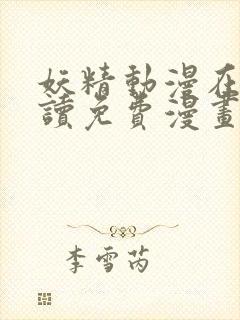 妖精動漫在
讀免費漫畫
李雪芮